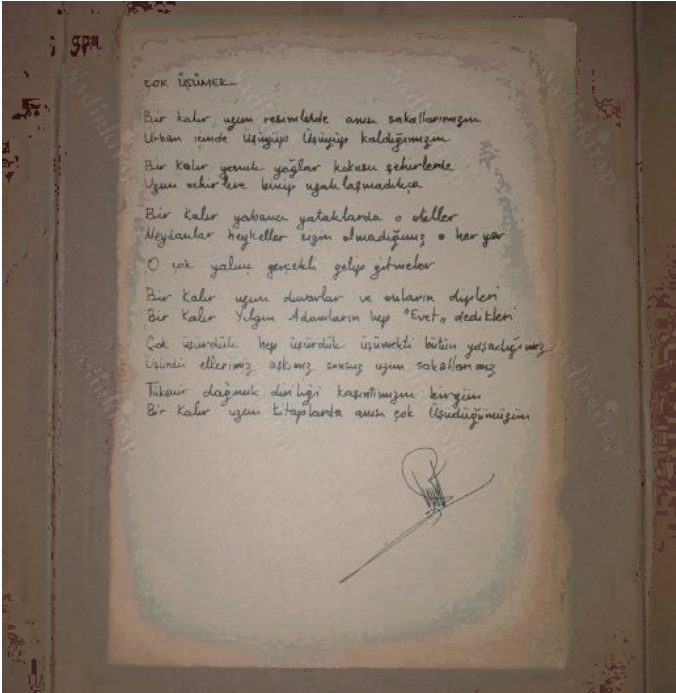 ÇOK ÜŞÜMEK
Bir Kalır uzun resimlerde anısı sakallarımızın
Urban içinde Üşüyüp Üşüyüp kaldığımızın
Bir Kalır yanık yağlar kokusu şehirlerde
Uzun nehirlere binip uzaklaşmadıkça
Bir Kalır yabancı yataklarda o oteller
Meydanlar heykeller sizin olmadığınız o her yer
O çok yalnız gerçekli gelip gitmeler
Bir Kalır uzun duvarlar ve onların dipleri
Bir Kalır Yılgın Adamların hep "Evet" dedikleri
Çok üşürdük hep üşürdük üşümekti bütün yaşadığımız
Üşürdü ellerimiz aşkımız sonsuz uzun sakallarımız
Tükenir dağınık diriliği kaşıntımızın birgün
Bir Kalır uzun kitaplarda anısı çok Üşüdüğümüzün